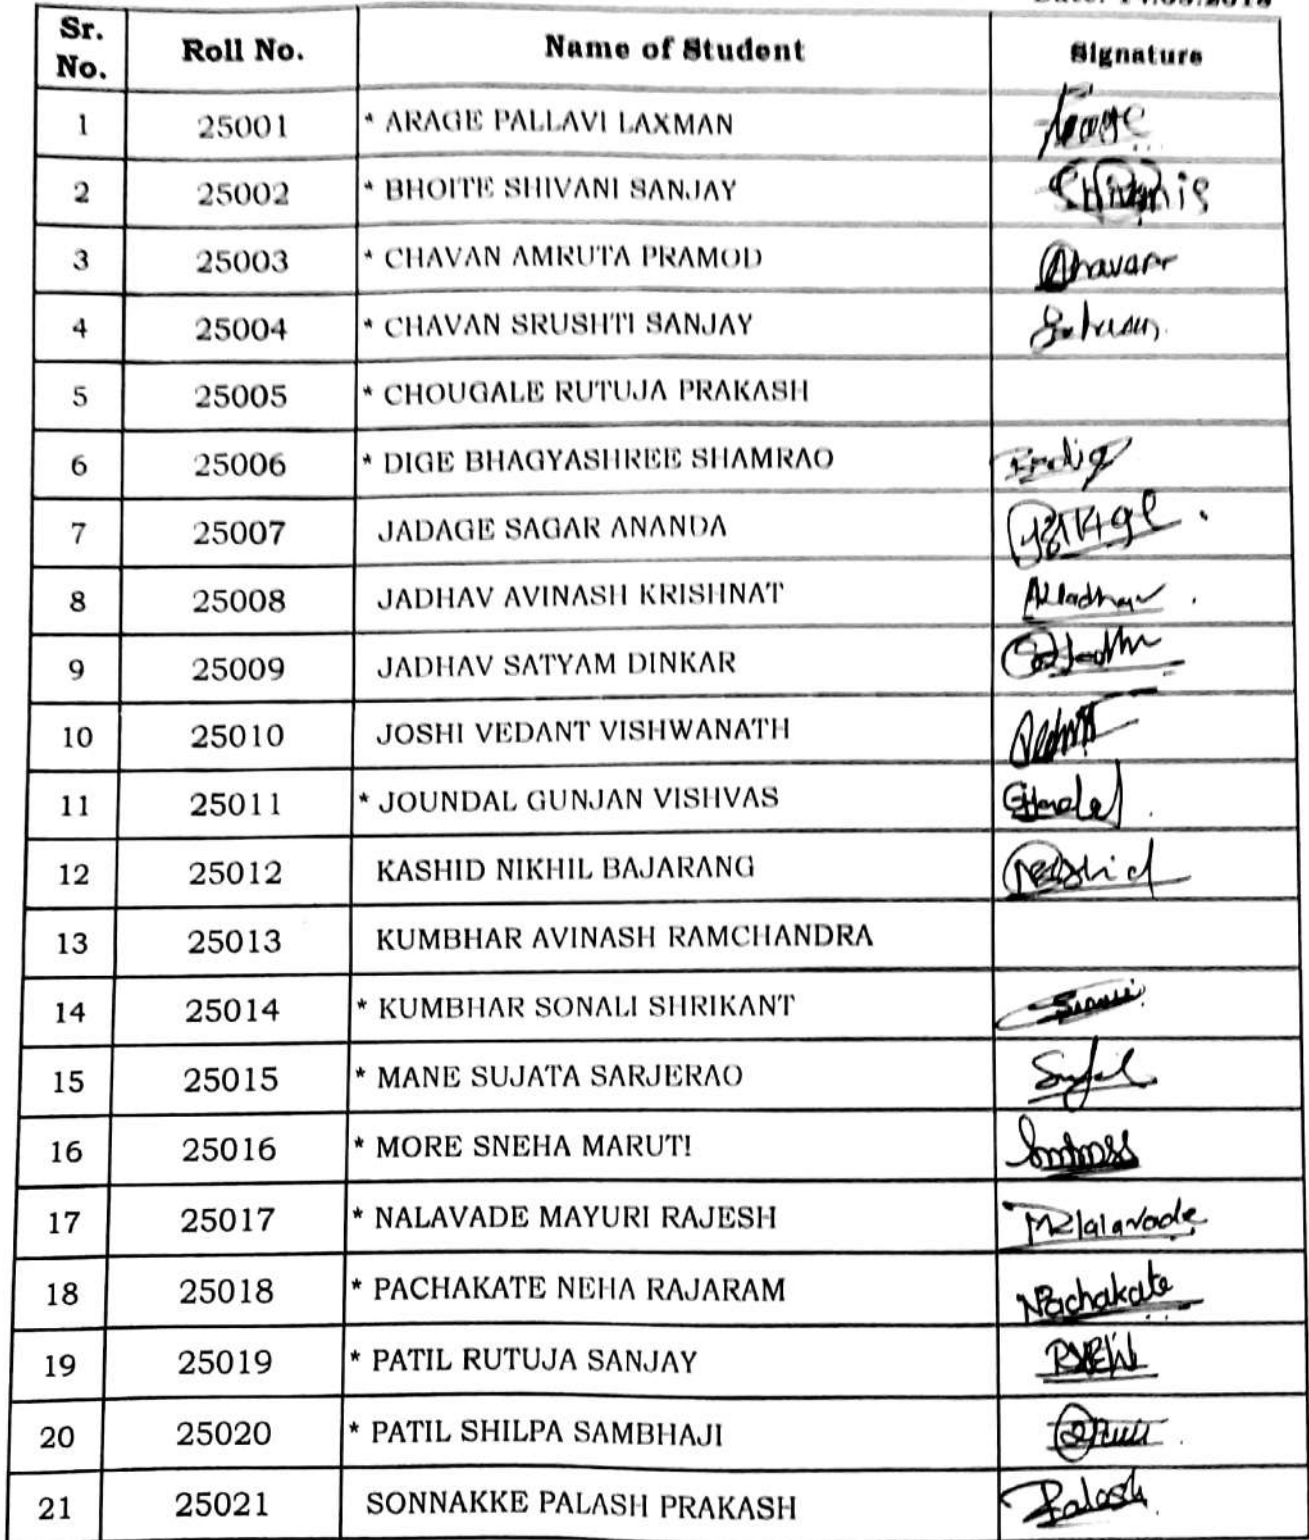 Sr. No. Roll No. Name of Student Signature
1 25001 * ARAGE PALLAVI LAXMAN Arage
2 25002 * BHOITE SHIVANI SANJAY
3 25003 * CHAVAN AMRUTA PRAMOD
4 25004 * CHAVAN SRUSHTI SANJAY
5 25005 * CHOUGALE RUTUJA PRAKASH
6 25006 * DIGE BHAGYASHREE SHAMRAO
7 25007 JADAGE SAGAR ANANDA
8 25008 JADHAV AVINASH KRISHNAT
9 25009 JADHAV SATYAM DINKAR
10 25010 JOSHI VEDANT VISHWANATH
11 25011 * JOUNDAL GUNJAN VISHVAS
12 25012 KASHID NIKHIL BAJARANG
13 25013 KUMBHAR AVINASH RAMCHANDRA
14 25014 * KUMBHAR SONALI SHRIKANT
15 25015 * MANE SUJATA SARJERAO
16 25016 * MORE SNEHA MARUTI
17 25017 * NALAVADE MAYURI RAJESH
18 25018 * PACHAKATE NEHA RAJARAM NPachakate
19 25019 * PATIL RUTUJA SANJAY
20 25020 * PATIL SHILPA SAMBHAJI
21 25021 SONNAKKE PALASH PRAKASH Palash